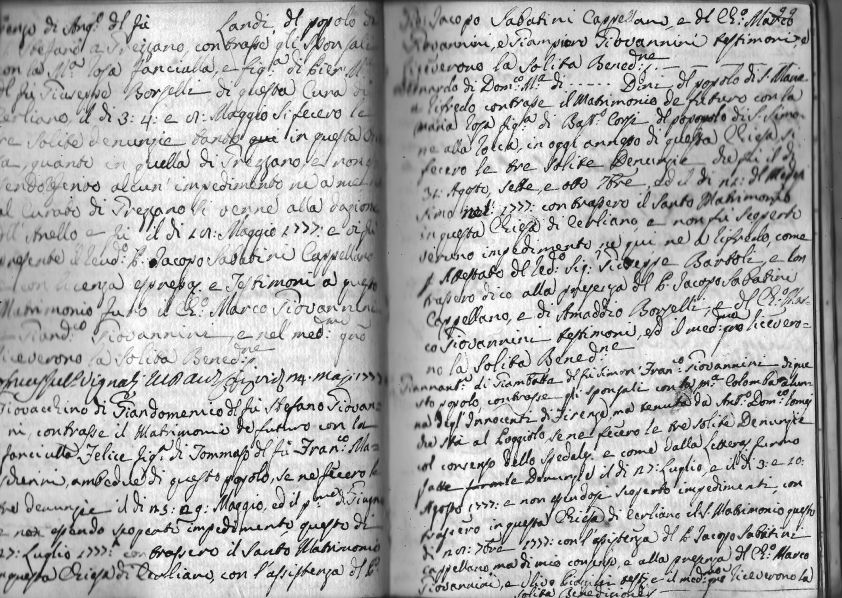 Lorenzo di Ang.º del fù Landi, del popolo di
S. Stefano a Tregano, contrasse gli Sponsali
con la M.ª Rosa fanciulla, e fig.ª di Pier M.ª
del fù Giuseppe Borselli di questa Cura di
Cerliano, il di 3: 4: e 11: Maggio si fecero le
tre solite denunzie tanto qui in questa
quanto in quella di Tregano e non
essendo alcun impedimento ne a me ne
al Curato di Tregano si venne alla dazione
dell'Anello e il di 21: Maggio 1777: e
presente il Rev.do P. Jacopo Sabatini Cappellano
con licenza espressa, e Testimoni a questo
Matrimonio furno il Ch.º Marco Giovannini
e Giand.co Giovannini e nel med.mo
riceverono la Solita Bened.ne
Giovacchino di Giandomenico del fù Stefano Giovan-
ni, contrasse il Matrimonio de futuro con la
fanciulla Felice fig.ª di Tommaso del fù Fran.co
ambedue di questo popolo, se ne fecero le
tre denunzie il di 25: 29: Maggio, ed il p.mo di Giugno
e non essendo scoperti impedimento, questo di
27: Luglio 1777: contrassero il Santo Matrimonio
in questa Chiesa di Cerliano, con l'assistenza del P.
di Jacopo Sabatini Cappellano, e del Ch.º Marco
Giovannini, e Giampiero Giovannini testimoni, e
riceverono la Solita Bened.ne
Bernardo di Dom.co M.ª di Dini del popolo di S. Maria
a Lifredo contrasse il Matrimonio de futuro con la
Maria Rosa fig.ª di Bast.º Corsi del popopolo di S. Simo-
ne alla Rocca, in oggi annesso di questa Chiesa si
fecero le tre Solite Denunzie che fù il di
31: Agosto, sette, e otto 7bre, ed il di 21: del Mede-
simo 1777: contrassero il Santo Matrimonio
in questa Chiesa di Cerliano, e non fù scoperto
veruno impedimento ne qui ne a Lifredo, come
p Attestato del Red.º Sig.r Giuseppe Bartoli, e con
trasero dico alla presenza del P. Jacopo Sabatini
Cappellano, e di Amaddio Borselli, e del Ch.º Mar-
co Giovannini testimoni, ed il med.mo riceve-
no la Solita Bened.ne
Giannant.º di Giambatta del fù Simon Fran.co Giovannini di que
sto popolo contrasse gli sponsali con la M.ª Colomba
degl'Innocenti di Firenze ma tenuta da Ant.º Dom.co
che stà al Loggiolo se ne fecero le tre Solite Denunzie
col consenso dello Spedale e come dalla Lettera
fatte Denunzie il di 27: Luglio, e il di 3: e 10:
Agosto 1777: e non essendosi scoperto impedimenti, con
trassero in questa Chiesa di Cerliano il S. Matrimonio questo
di 21: 7bre 1777: con l'assistenza del P. Jacopo Sabatini
Cappellano, ma di mio consenso, e alla presenza del Ch.º Marco
Giovannini, e di e il med.mo riceverono la
Solita Benedicione